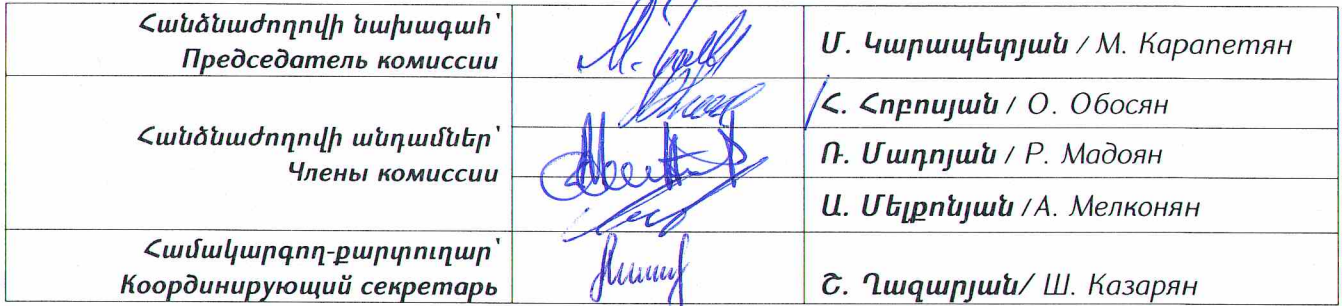 Հանձնաժողովի նախագահ՝
Председатель комиссии
Մ. Կարապետյան / М. Карапетян
Հանձնաժողովի անդամներ՝
Члены комиссии
Հ. Հոբոսյան / О. Обосян
Ռ. Մադոյան / Р. Мадоян
Ա. Մելքոնյան / А. Мелконян
Համակարգող-քարտուղար՝
Координирующий секретарь
Շ. Ղազարյան/ Ш. Казарян